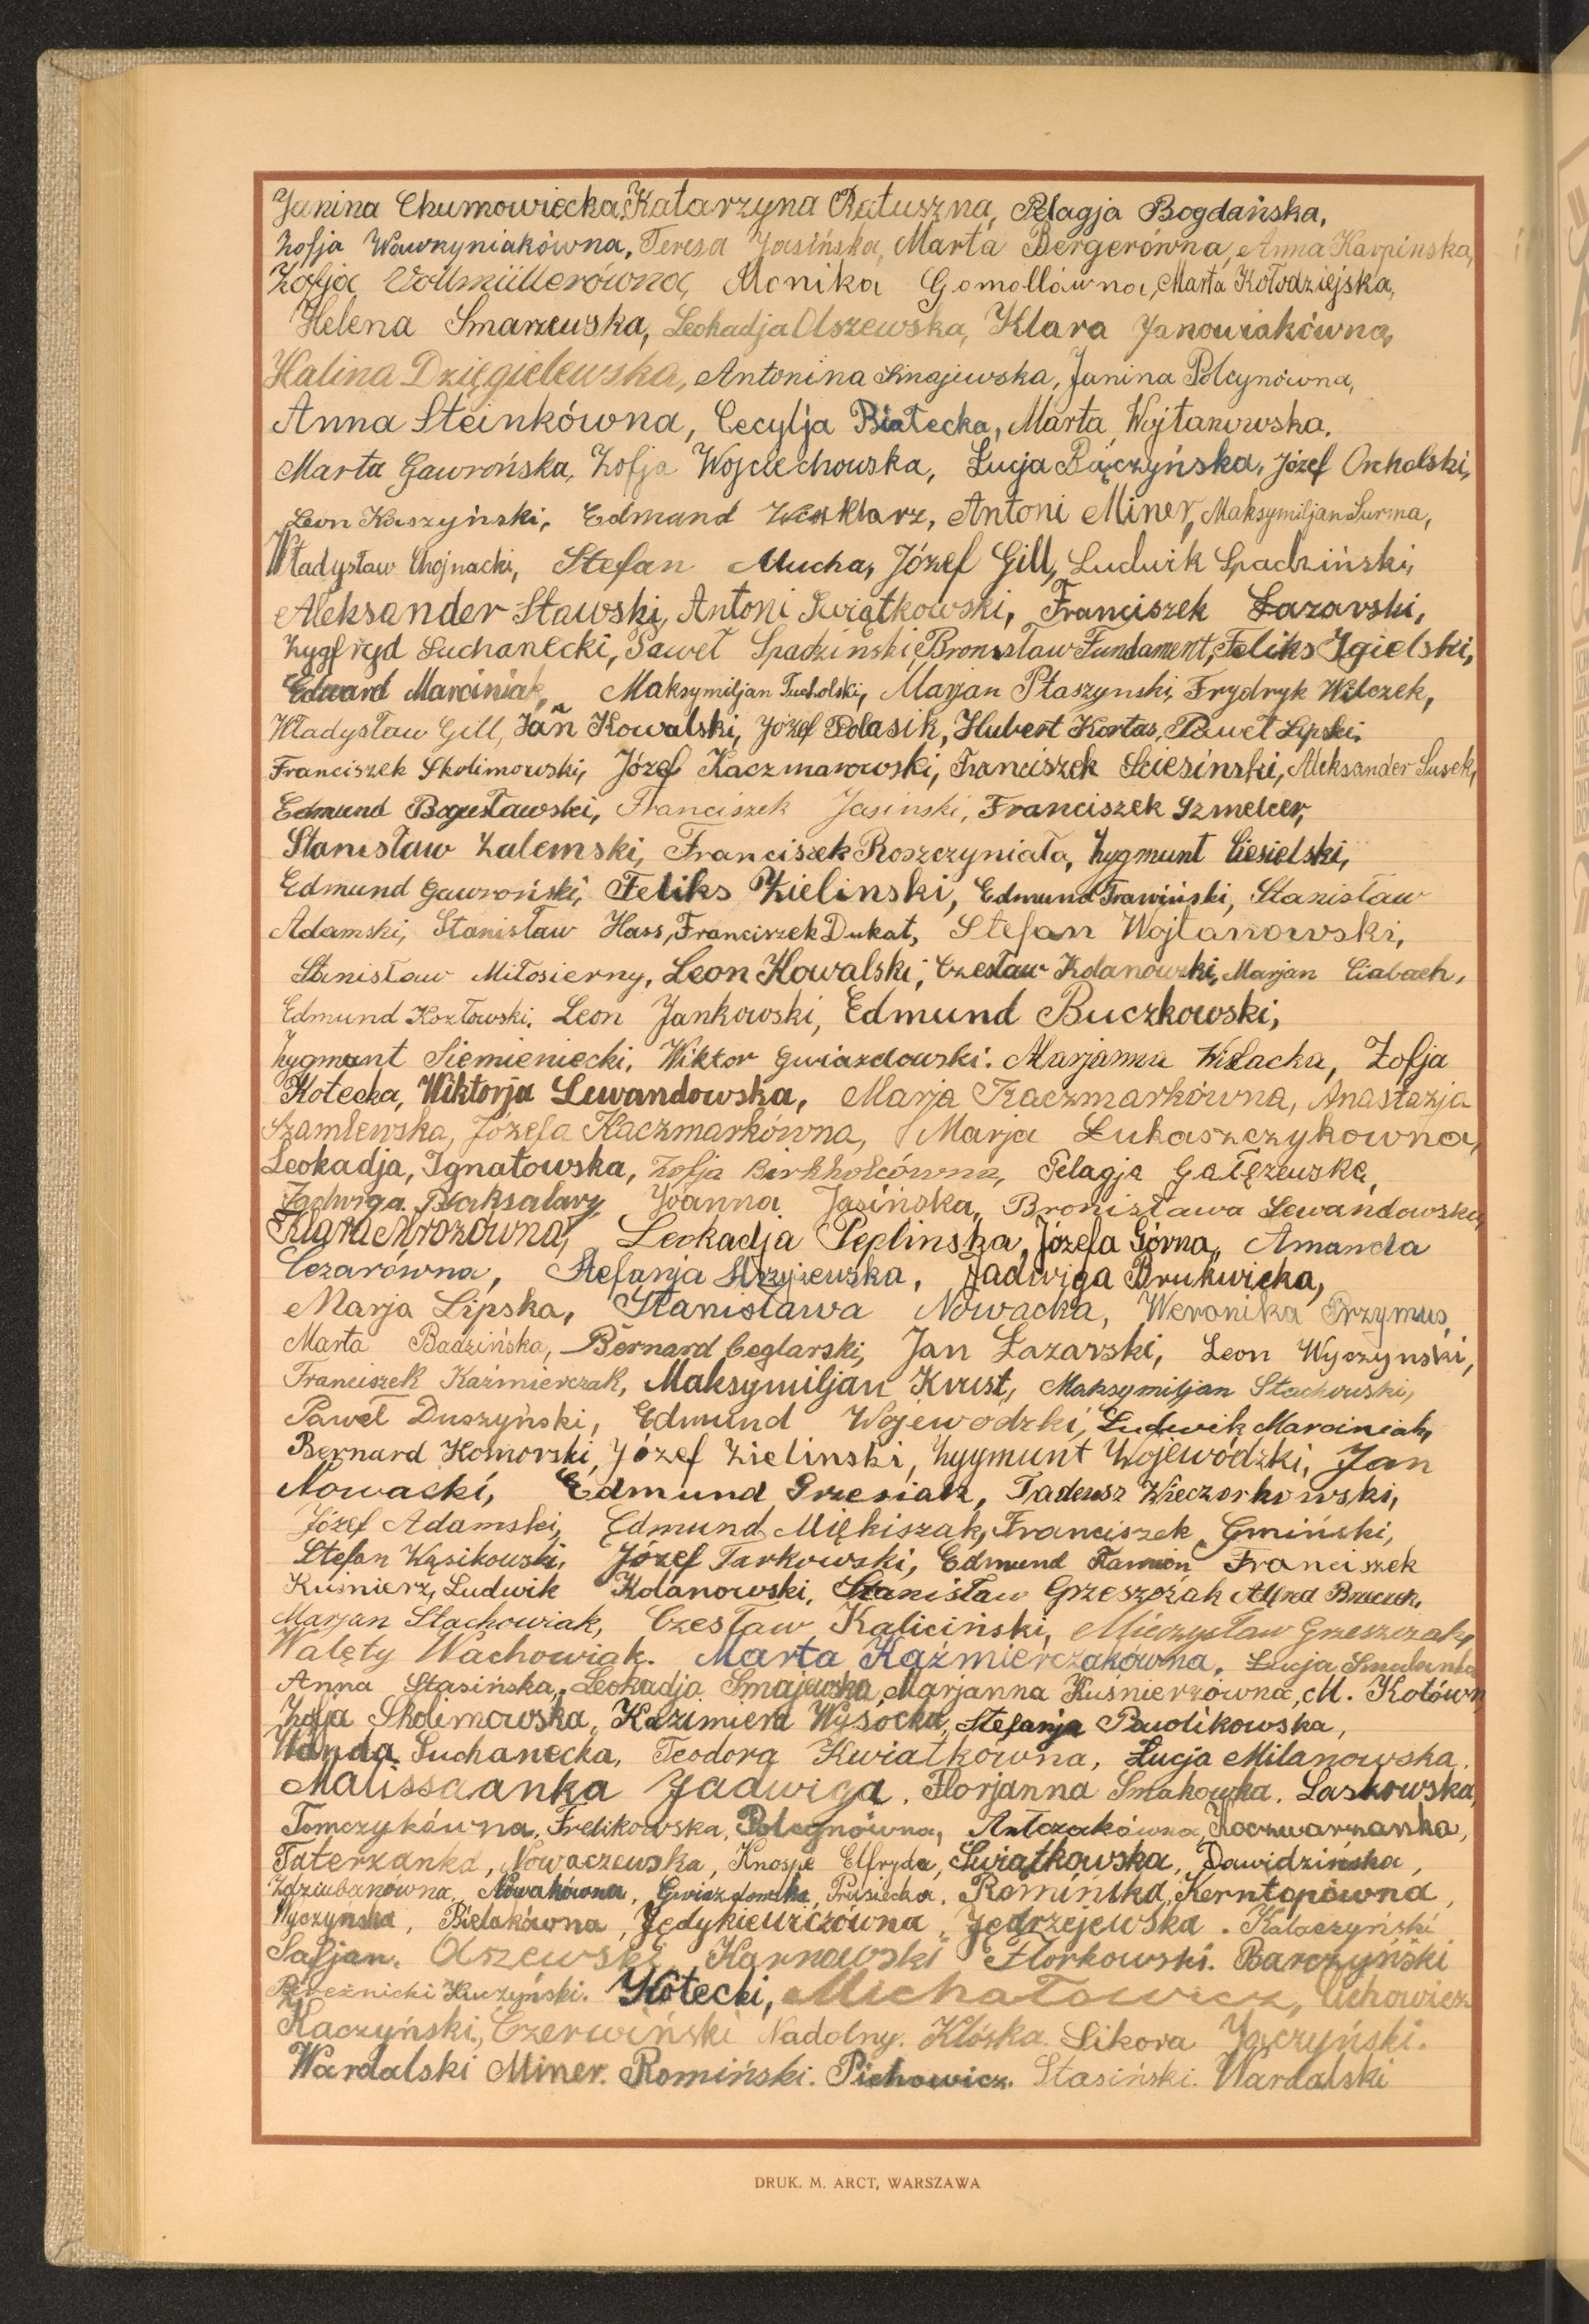 Janina Chumowiecka, Katarzyna Ratuszna, Pelagja Bogdańska,
Zofja Wawrzyniakówna, Teresa Jasińska, Marta Bergerówna, Anna Karpinska,
Zofja Vollmüllerówna, Monika Gomollówna, Marta Kołodziejska,
Helena Smarzewska, Leokadja Olszewska, Klara Janowiakówna,
Halina Dzięgielewska, Antonina Smajewska, Janina Polcynówna,
Anna Steinkówna, Cecylja Białecka, Marta Wojtanowska.
Marta Gawrońska, Zofja Wojciechowska, Łucja Pączyńska, Józef Orchalski,
Leon Kaszyński, Edmund Szklarz, Antoni Miner, Maksymiljan Surma,
Władysław Chojnacki, Stefan Mucha, Józef Gill, Ludwik Spadziński,
Aleksander Stawski, Antoni Świątkowski, Franciszek Łazarski,
Zygfryd Suchanecki, Paweł Spadzinski, Bronisław Fundament, Feliks Igielski,
Edward Marciniak, Maksymiljan Tucholski, Marjan Ptaszynski, Frydryk Wilczek,
Władysław Gill, Jan Kowalski, Józef Polasik, Hubert Kortas, Paweł Lipski,
Franciszek Skolimowski, Józef Kaczmarowski, Franciszek Sciesinski, Aleksander Susek,
Edmund Bogusławski, Franciszek Jasinski, Franciszek Szmelcer,
Stanisław Zalemski, Franciszek Roszczyniała, Zygmunt Ciesielski,
Edmund Gawroński, Feliks Zielinski, Edmund Trawiński, Stanisław
Adamski, Stanisław Hass, Franciszek Dukat, Stefan Wojtanowski,
Stanisław Miłosierny, Leon Kowalski, Czesław Kolanowski, Marjan Ciabach,
Edmund Kozłowski, Leon Jankowski, Edmund Buczkowski,
Zygmunt Siemieniecki, Wiktor Gwiazdowski. Marjanna Wisłacka, Zofja
Kotecka, Wiktorja Lewandowska, Marja Kaczmarkówna, Anastazja
Szamlewska, Józefa Kaczmarkówna, Marja Łukaszczykowna,
Leokadja, Ignatowska, Zofja Birkholcówna, Pelagja Gałęzewska,
Jadwiga Baksalary, Joanna Jasińska, Bronisława Lewandowska,
Klara Mrozówna, Leokadja Peplinska, Józefa Górna, Amanda
Cezarówna, Stefanja Strzyżewska, Jadwiga Brukwicka,
Marja Lipska, Stanisława Nowacka, Weronika Przymus,
Marta Badzińska, Bernard Ceglarski, Jan Łazarski, Leon Wyczynski,
Franciszek Kaźmierczak, Maksymiljan Knust, Maksymiljan Stachowski,
Paweł Duszyński, Edmund Wojewodzki, Ludwik Marciniak,
Bernard Komorski, Józef Zielinski, Zygmunt Wojewódzki, Jan
Nowacki, Edmund Grzesiak, Tadeusz Wieczorkowski,
Józef Adamski, Edmund Miękiszak, Franciszek Gmiński,
Stefan Wąsikowski, Józef Tarkowski, Edmund Kamion Franciszek
Kuśnierz, Ludwik Kolanowski, Stanisław Grzeszczak Alfred
Marjan Stachowiak, Czesław Kaliciński, Mieczysław Grzeszczak,
Walęty Wachowiak. Marta Kaźmierczakówna, Łucja
Anna Stasińska, Leokadja Smajewska, Marjanna Kuśnierzówna, M. Kotówn
Zofja Skolimowska, Kazimiera Wysocka, Stefanja Pawlikowska,
Wanda Suchanecka, Teodora Kwiatkowna, Łucja Milanowska,
Malissaanka Jadwiga, Florjanna Smakowka. Laskowska,
Tomczykówna, Frelikowska, Polcynówna, Antczakówna, Kaczmarzanka,
Taterzanka, Nowaczewska, Knospe Elfryda, Świątkowska, Dawidzińska,
Zdziubanówna, Nowakówna, Gwiazdowska, Prusiecka, Romińska, Kerntopówna,
Wyczynska, Bielakówna, Jędykiewiczówna, Jędrzejewska. Kalaczyński
Safjan. Olszewski Karnowski Florkowski. Barczyński
Bereźnicki Kuczyński. Kotecki, Michałowicz, Cichowicz
Kaczyński, Czerwiński Nadolny. Klóska Sikora Jaczyński.
Wardalski Miner. Romiński. Pichowicz. Stasiński. Wardalski
DRUK. M. ARCT, WARSZAWA